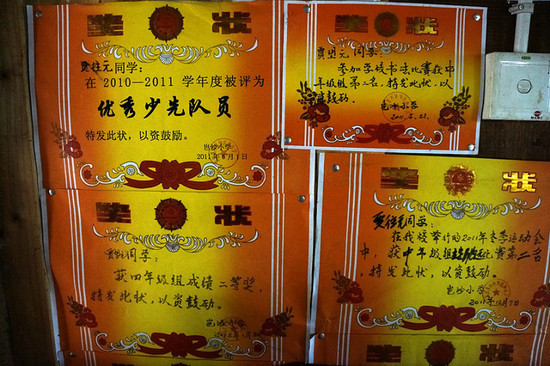 奖 状
贾胜元同学:
在 2010—2011 学年度被评为
优秀少先队员
特发此状,以资鼓励。
岜沙小学
2011年6月1日
奖 状
贾胜元 同学:
参加学校书法比赛获中
年级组第二名,特发此状,以
资鼓励。
岜沙小学
奖 状
同学:
获四年级组成绩二等奖,
特发此状,以资鼓励。
岜沙小学
奖 状
同学:
在我校举行的2011年冬季运动会
中,获中年级组 比赛第二名
特发此状,以资鼓励。
岜沙小学
奖 状